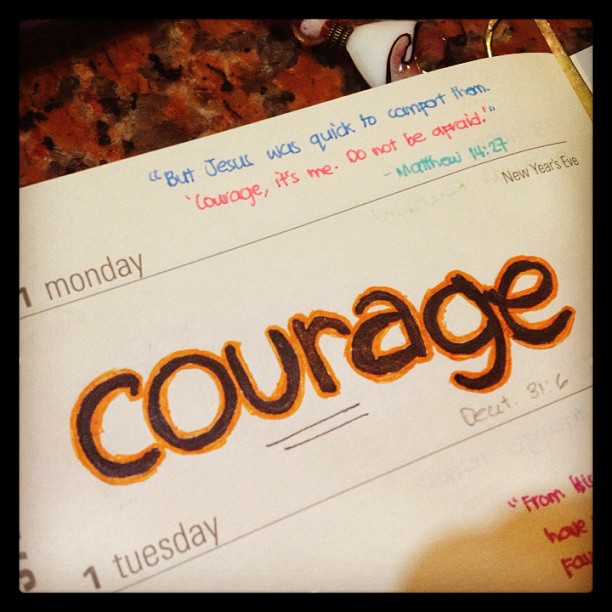 "But Jesus was quick to comfort them.
'Courage, it's me. Do not be afraid.'"
- Matthew 14:27
New Year's Eve
1 monday
courage
Deut. 31:6
1 tuesday
"From His
have